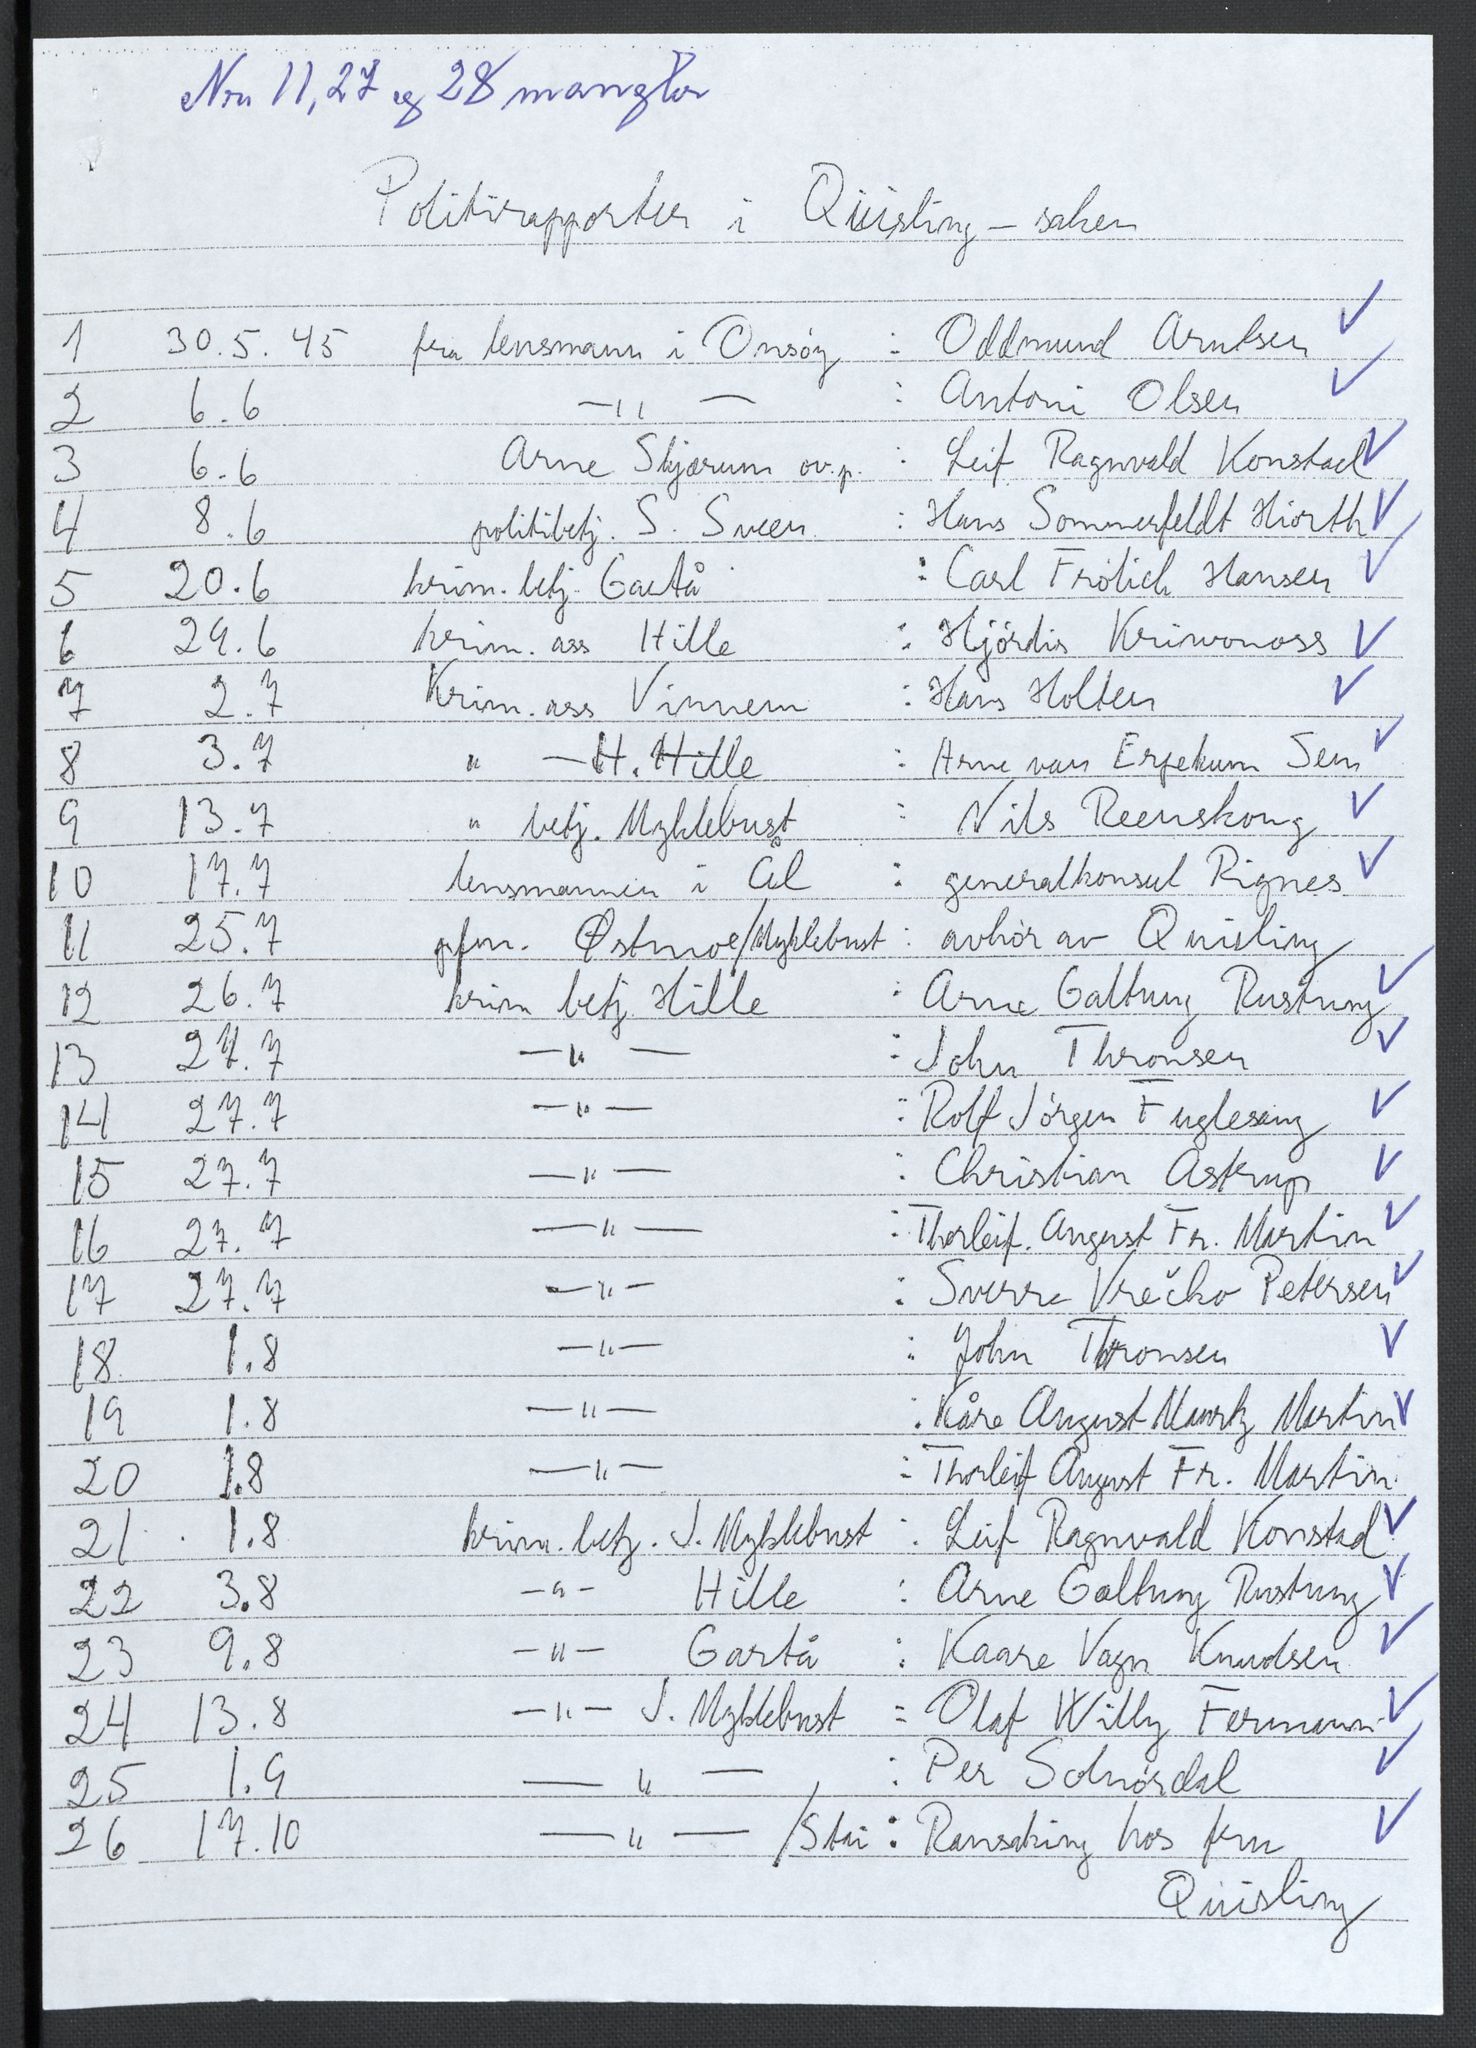 Nr. 11, 27 og 28 mangler
Politirapporter i Quisling-saken
1 30.5.45 fra lensmann i Onsøy : Oddmund Arntsen ✓
2 6.6 —"— : Antoni Olsen ✓
3 6.6 Arne Skjærum ov.p. : Leif Ragnvald Konstad ✓
4 8.6 politibetj. S. Sveen : Hans Sommerfeldt Hiorth ✓
5 20.6 krim. betj. Gartå : Carl Frölich Hansen ✓
6 29.6 krim. ass Hille : Hjördis Kriwonoss ✓
7 2.7 Krim. ass Vinnem : Hans Holten ✓
8 3.7 " — H. Hille : Arne van Erpekum Sem ✓
9 13.7 " betj. Myklebust : Nils Reenskong ✓
10 17.7 lensmannen i Ål : generalkonsul Rignes ✓
11 25.7 pfm. Østmoe/Myklebust : avhör av Quisling
12 26.7 krim betj. Hille : Arne Galtung Rustung ✓
13 27.7 —"— : John Thronsen ✓
14 27.7 —"— : Rolf Jörgen Fuglesang ✓
15 27.7 —"— : Christian Astrup ✓
16 27.7 —"— : Thorleif. August Fr. Martin ✓
17 27.7 —"— : Sverre Vrečko Petersen ✓
18 1.8 —"— : John Thronsen ✓
19 1.8 —"— : Kåre August Mauritz Martin ✓
20 1.8 —"— : Thorleif August Fr. Martin
21 1.8 krim. betj. J. Myklebust : Leif Ragnvald Konstad ✓
22 3.8 —"— Hille : Arne Galtung Rustung ✓
23 9.8 —"— Gartå : Kaare Vagn Knudsen ✓
24 13.8 —"— J. Myklebust : Olaf Willy Fermann ✓
25 1.9 —"— : Per Solnördal ✓
26 17.10 —"— /Stai : Ransaking hos fru ✓
Quisling